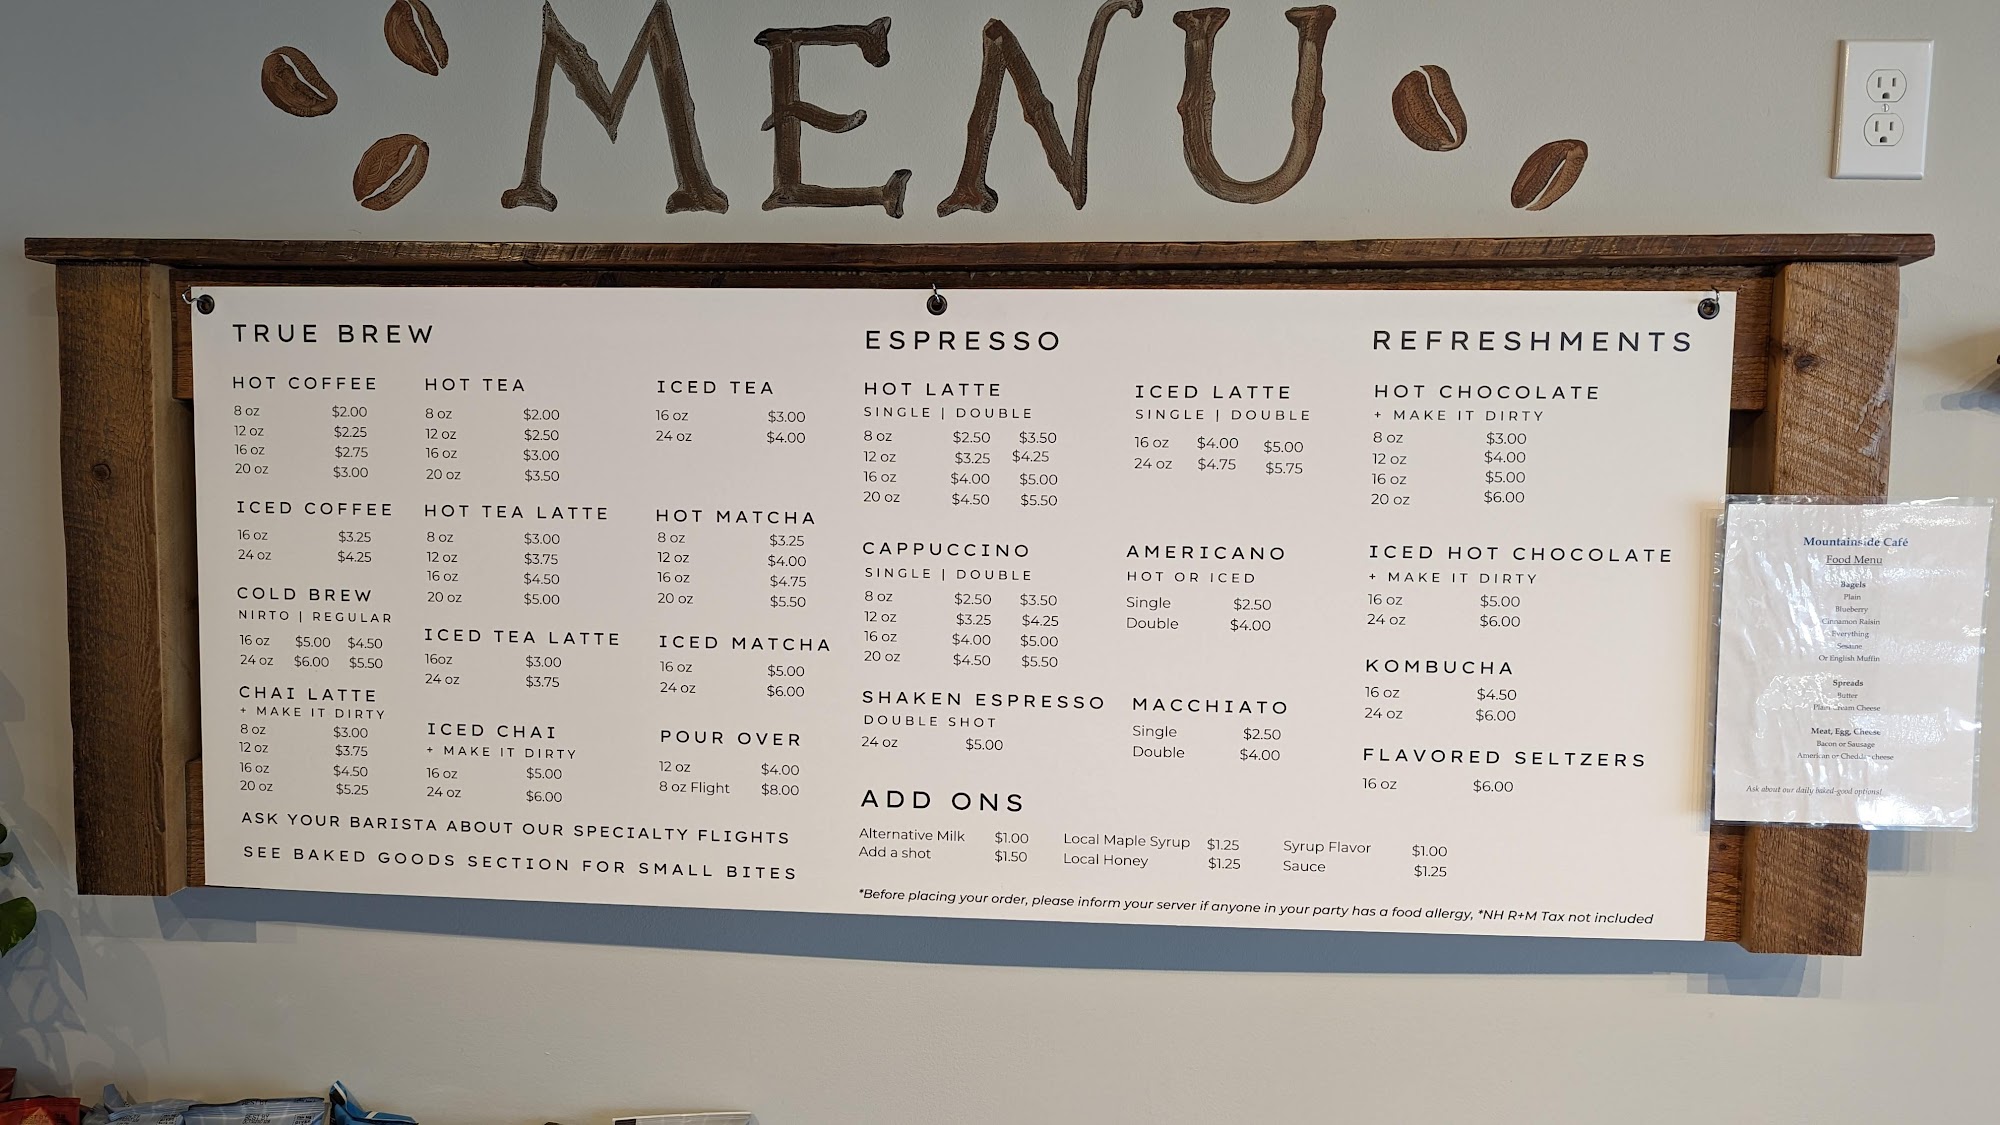 MENU
TRUE BREW
HOT COFFEE
8 oz $2.00
12 oz $2.25
16 oz $2.75
20 oz $3.00
ICED COFFEE
16 oz $3.25
24 oz $4.25
COLD BREW
NIRTO | REGULAR
16 oz $5.00 $4.50
24 oz $6.00 $5.50
CHAI LATTE
+ MAKE IT DIRTY
8 oz $3.00
12 oz $3.75
16 oz $4.50
20 oz $5.25
HOT TEA
8 oz $2.00
12 oz $2.50
16 oz $3.00
20 oz $3.50
HOT TEA LATTE
8 oz $3.00
12 oz $3.75
16 oz $4.50
20 oz $5.00
ICED TEA LATTE
16oz $3.00
24 oz $3.75
ICED CHAI
+ MAKE IT DIRTY
16 oz $5.00
24 oz $6.00
ICED TEA
16 oz $3.00
24 oz $4.00
HOT MATCHA
8 oz $3.25
12 oz $4.00
16 oz $4.75
20 oz $5.50
ICED MATCHA
16 oz $5.00
24 oz $6.00
POUR OVER
12 oz $4.00
8 oz Flight $8.00
ASK YOUR BARISTA ABOUT OUR SPECIALTY FLIGHTS
SEE BAKED GOODS SECTION FOR SMALL BITES
ESPRESSO
HOT LATTE
SINGLE | DOUBLE
8 oz $2.50 $3.50
12 oz $3.25 $4.25
16 oz $4.00 $5.00
20 oz $4.50 $5.50
CAPPUCCINO
SINGLE | DOUBLE
8 oz $2.50 $3.50
12 oz $3.25 $4.25
16 oz $4.00 $5.00
20 oz $4.50 $5.50
SHAKEN ESPRESSO
DOUBLE SHOT
24 oz $5.00
ICED LATTE
SINGLE | DOUBLE
16 oz $4.00 $5.00
24 oz $4.75 $5.75
AMERICANO
HOT OR ICED
Single $2.50
Double $4.00
MACCHIATO
Single $2.50
Double $4.00
ADD ONS
Alternative Milk $1.00 Local Maple Syrup $1.25 Syrup Flavor $1.00
Add a shot $1.50 Local Honey $1.25 Sauce $1.25
*Before placing your order, please inform your server if anyone in your party has a food allergy, *NH R+M Tax not included
REFRESHMENTS
HOT CHOCOLATE
+ MAKE IT DIRTY
8 oz $3.00
12 oz $4.00
16 oz $5.00
20 oz $6.00
ICED HOT CHOCOLATE
+ MAKE IT DIRTY
16 oz $5.00
24 oz $6.00
KOMBUCHA
16 oz $4.50
24 oz $6.00
FLAVORED SELTZERS
16 oz $6.00
Mountainside Café
Food Menu
Bagels
Plain
Blueberry
Cinnamon Raisin
Everything
Sesame
Or English Muffin
Spreads
Butter
Plain Cream Cheese
Meat, Egg, Cheese
Bacon or Sausage
American or Cheddar cheese
Ask about our daily baked-good options!